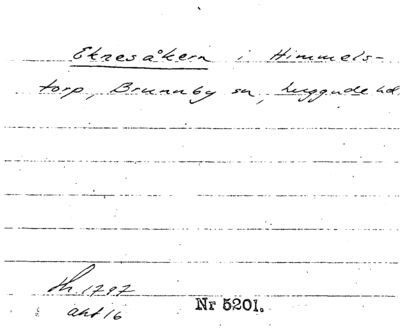 Eknesåkern i Himmels-
torp, Brunnby sn, Luggude hd.
Lh. 1797
akt 16
Nr 5201.